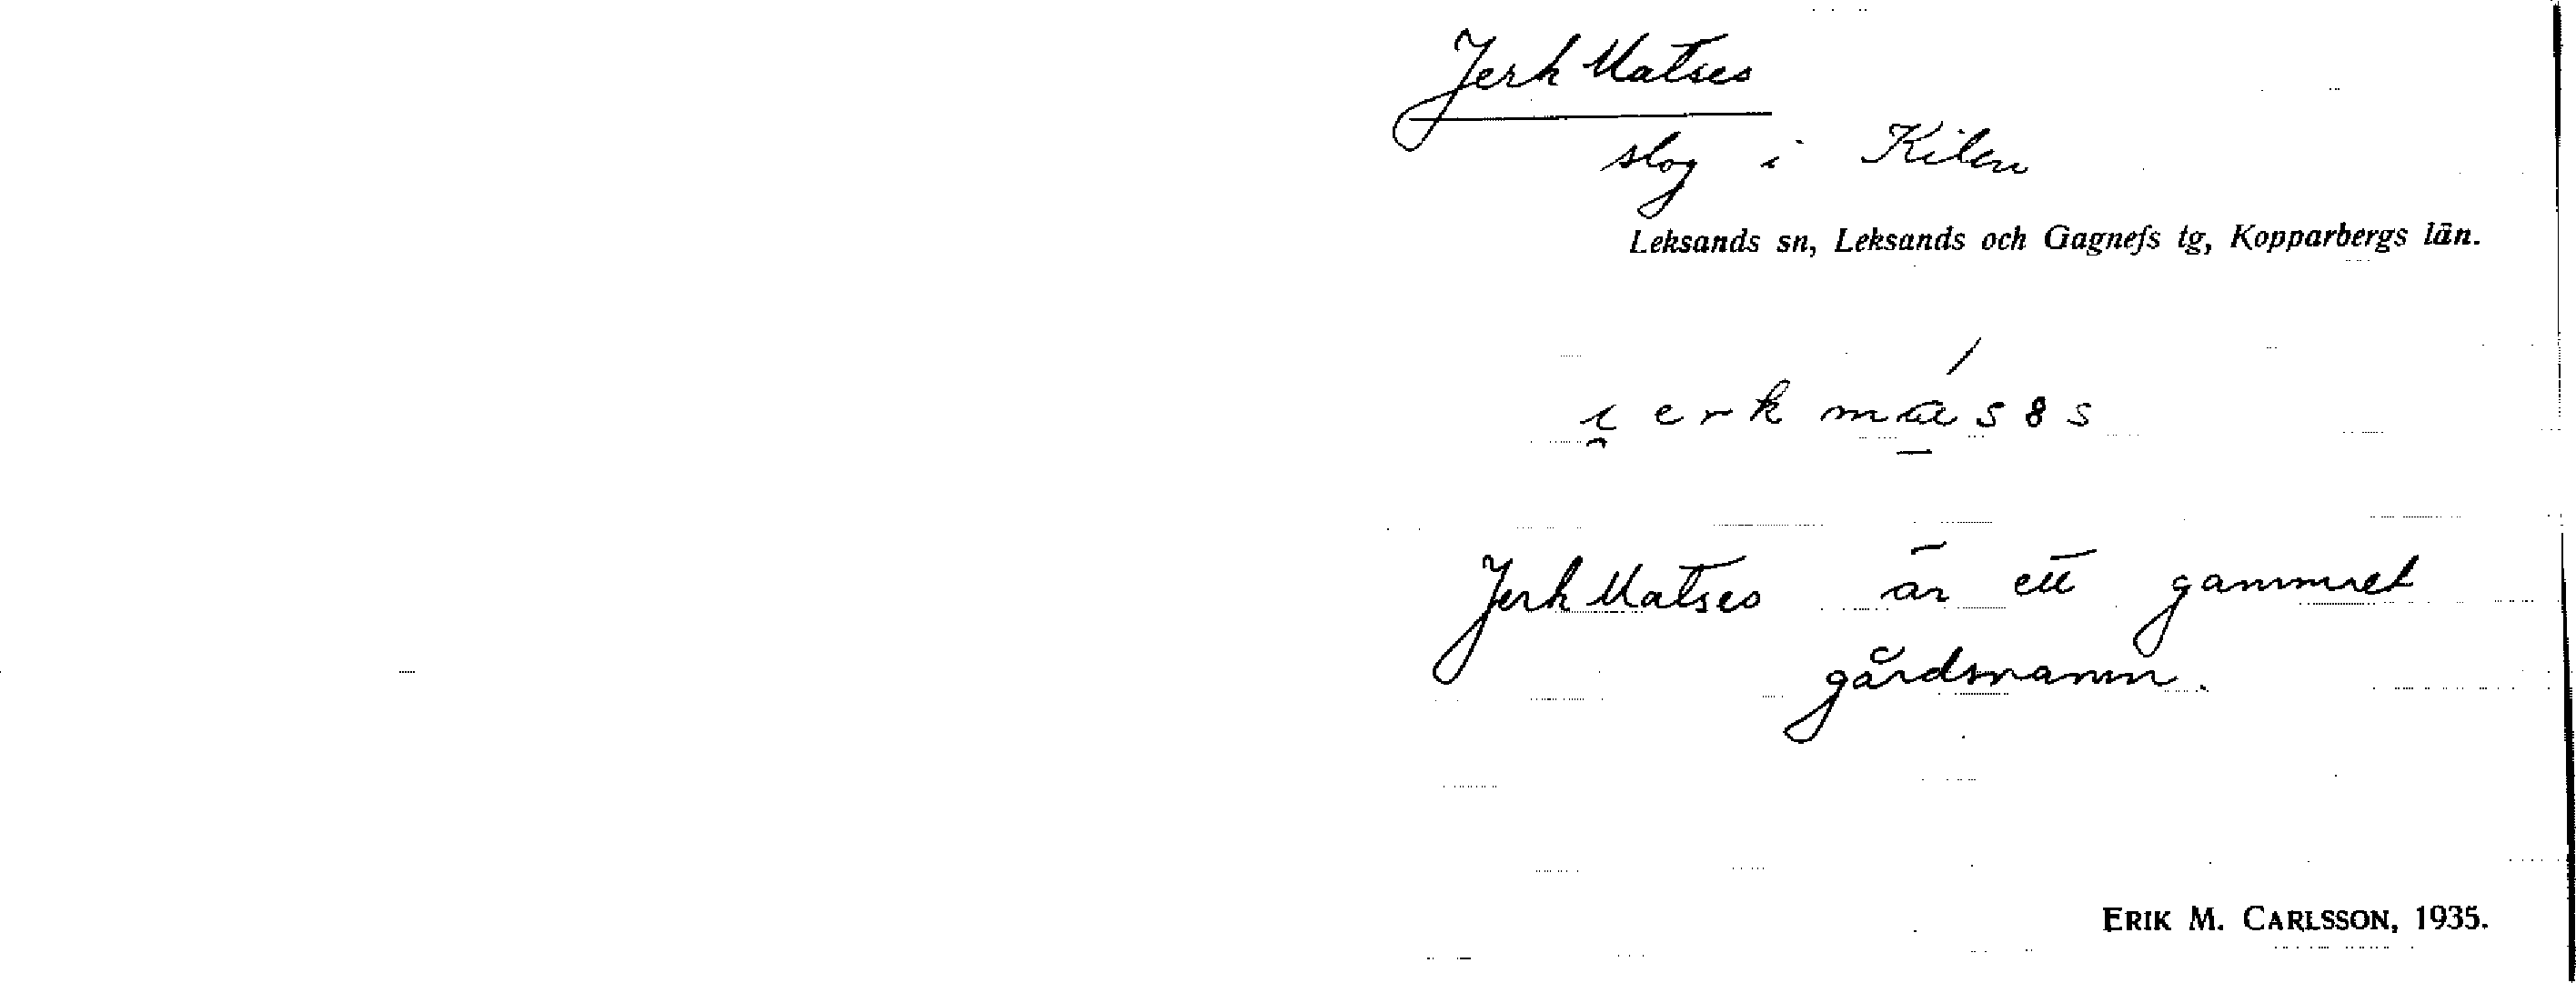 Jerk Matses
slog i Kilen
Leksands sn, Leksands och Gagnefs tg, Kopparbergs län.
i̯ erk má̱s8s
Jerk Matses är ett gammalt
gårdsnamn.
ERIK M. CARLSSON, 1935.